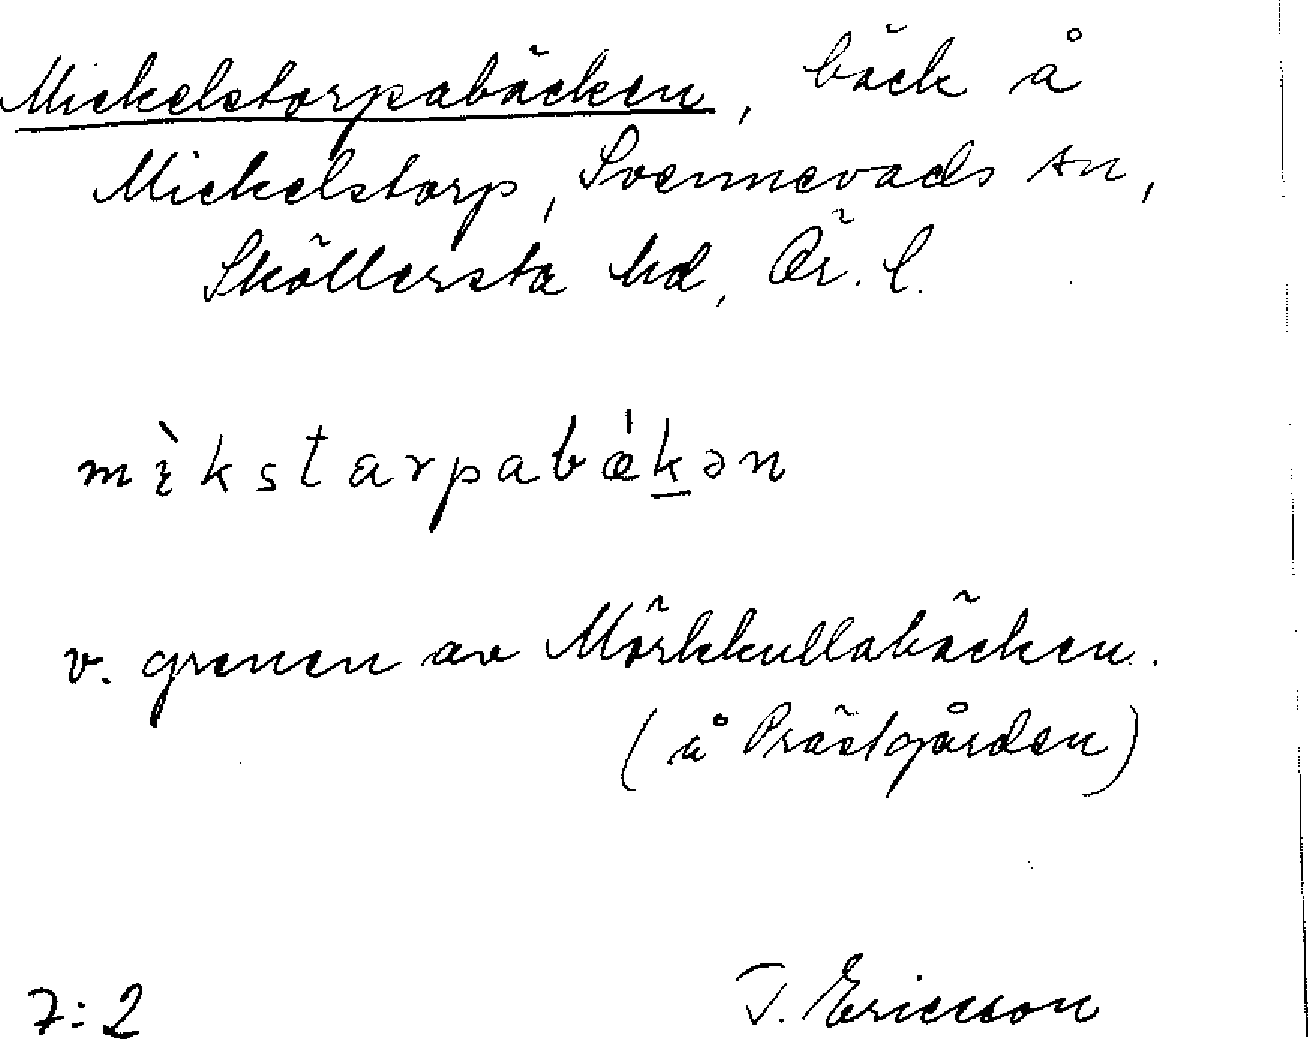 Mickelstorpabäcken, bäck å
Mickelstorp, Svennevads sn,
Sköllersta hd, Ör. l.
mìkstarpabǽk̠ən
v. grenen av Mörkkullabäcken.
(å Prästgården)
7:2 T. Ericsson